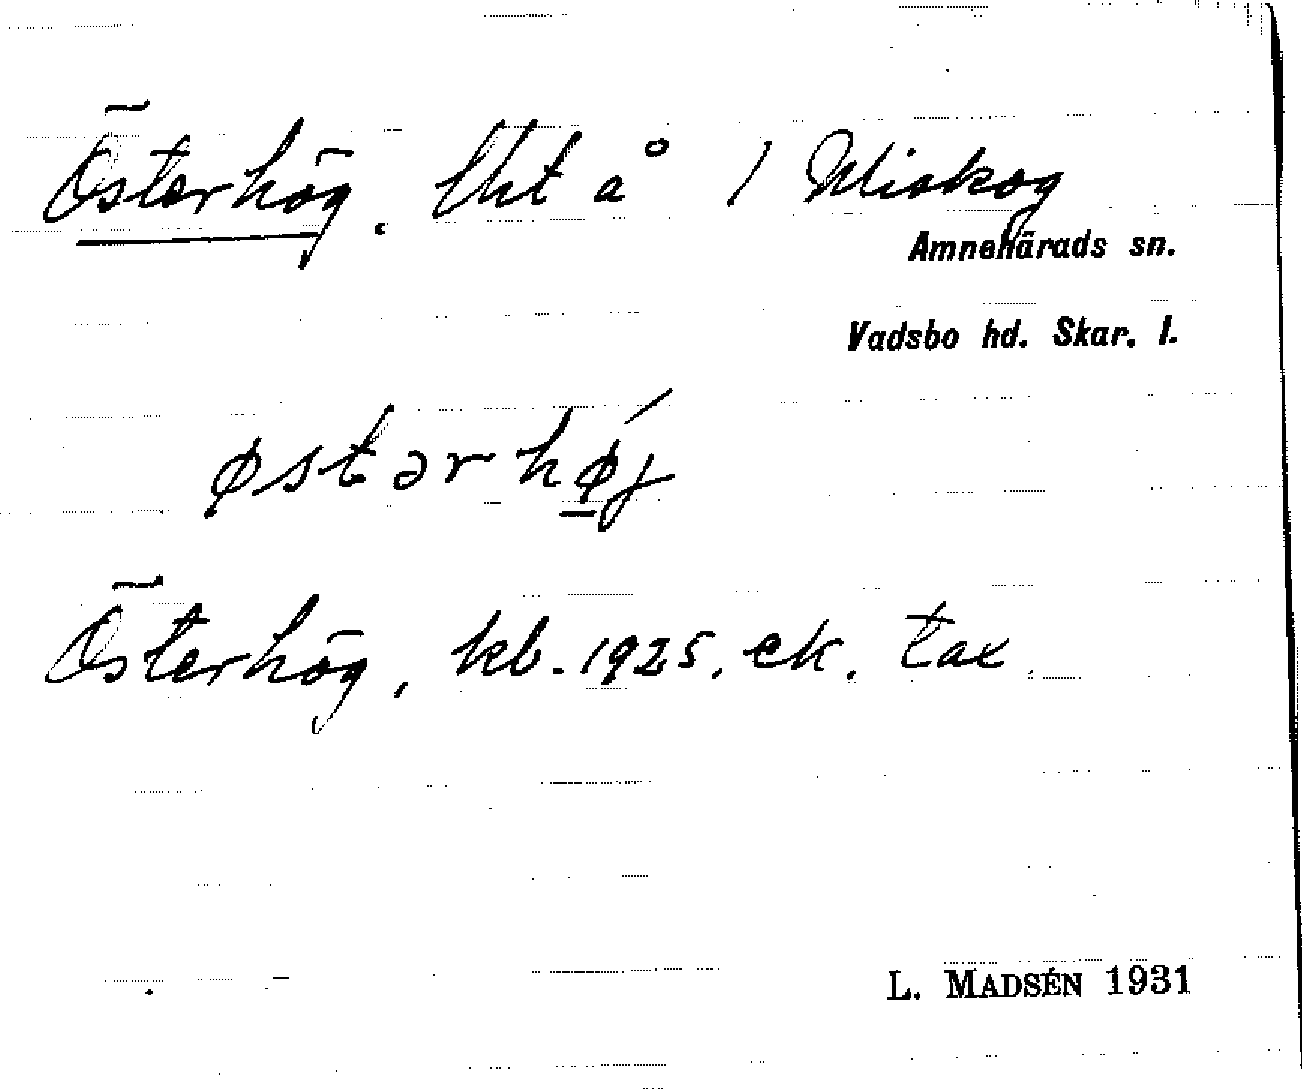 Österhög. lht å 1 Miskog
Amnehärads sn.
Vadsbo hd. Skar. l.
østərhǿj
Österhög, kb. 1925. ek. tax.
L. MADSÉN 1931